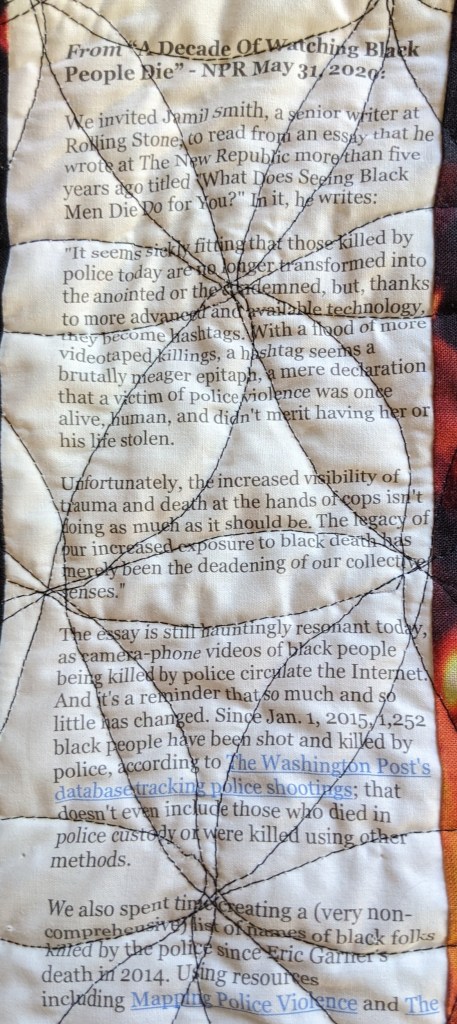 From "A Decade Of Watching Black
People Die" - NPR May 31, 2020:
We invited Jamil Smith, a senior writer at
Rolling Stone, to read from an essay that he
wrote at The New Republic more than five
years ago titled "What Does Seeing Black
Men Die Do for You?" In it, he writes:
"It seems sickly fitting that those killed by
police today are no longer transformed into
the anointed or the condemned, but, thanks
to more advanced and available technology,
they become hashtags. With a flood of more
videotaped killings, a hashtag seems a
brutally meager epitaph, a mere declaration
that a victim of police violence was once
alive, human, and didn't merit having her or
his life stolen.
Unfortunately, the increased visibility of
trauma and death at the hands of cops isn't
doing as much as it should be. The legacy of
our increased exposure to black death has
merely been the deadening of our collective
senses."
The essay is still hauntingly resonant today,
as camera-phone videos of black people
being killed by police circulate the Internet.
And it's a reminder that so much and so
little has changed. Since Jan. 1, 2015, 1,252
black people have been shot and killed by
police, according to The Washington Post's
database tracking police shootings; that
doesn't even include those who died in
police custody or were killed using other
methods.
We also spent time creating a (very non-
comprehensive) list of names of black folks
killed by the police since Eric Garner's
death in 2014. Using resources
including Mapping Police Violence and The